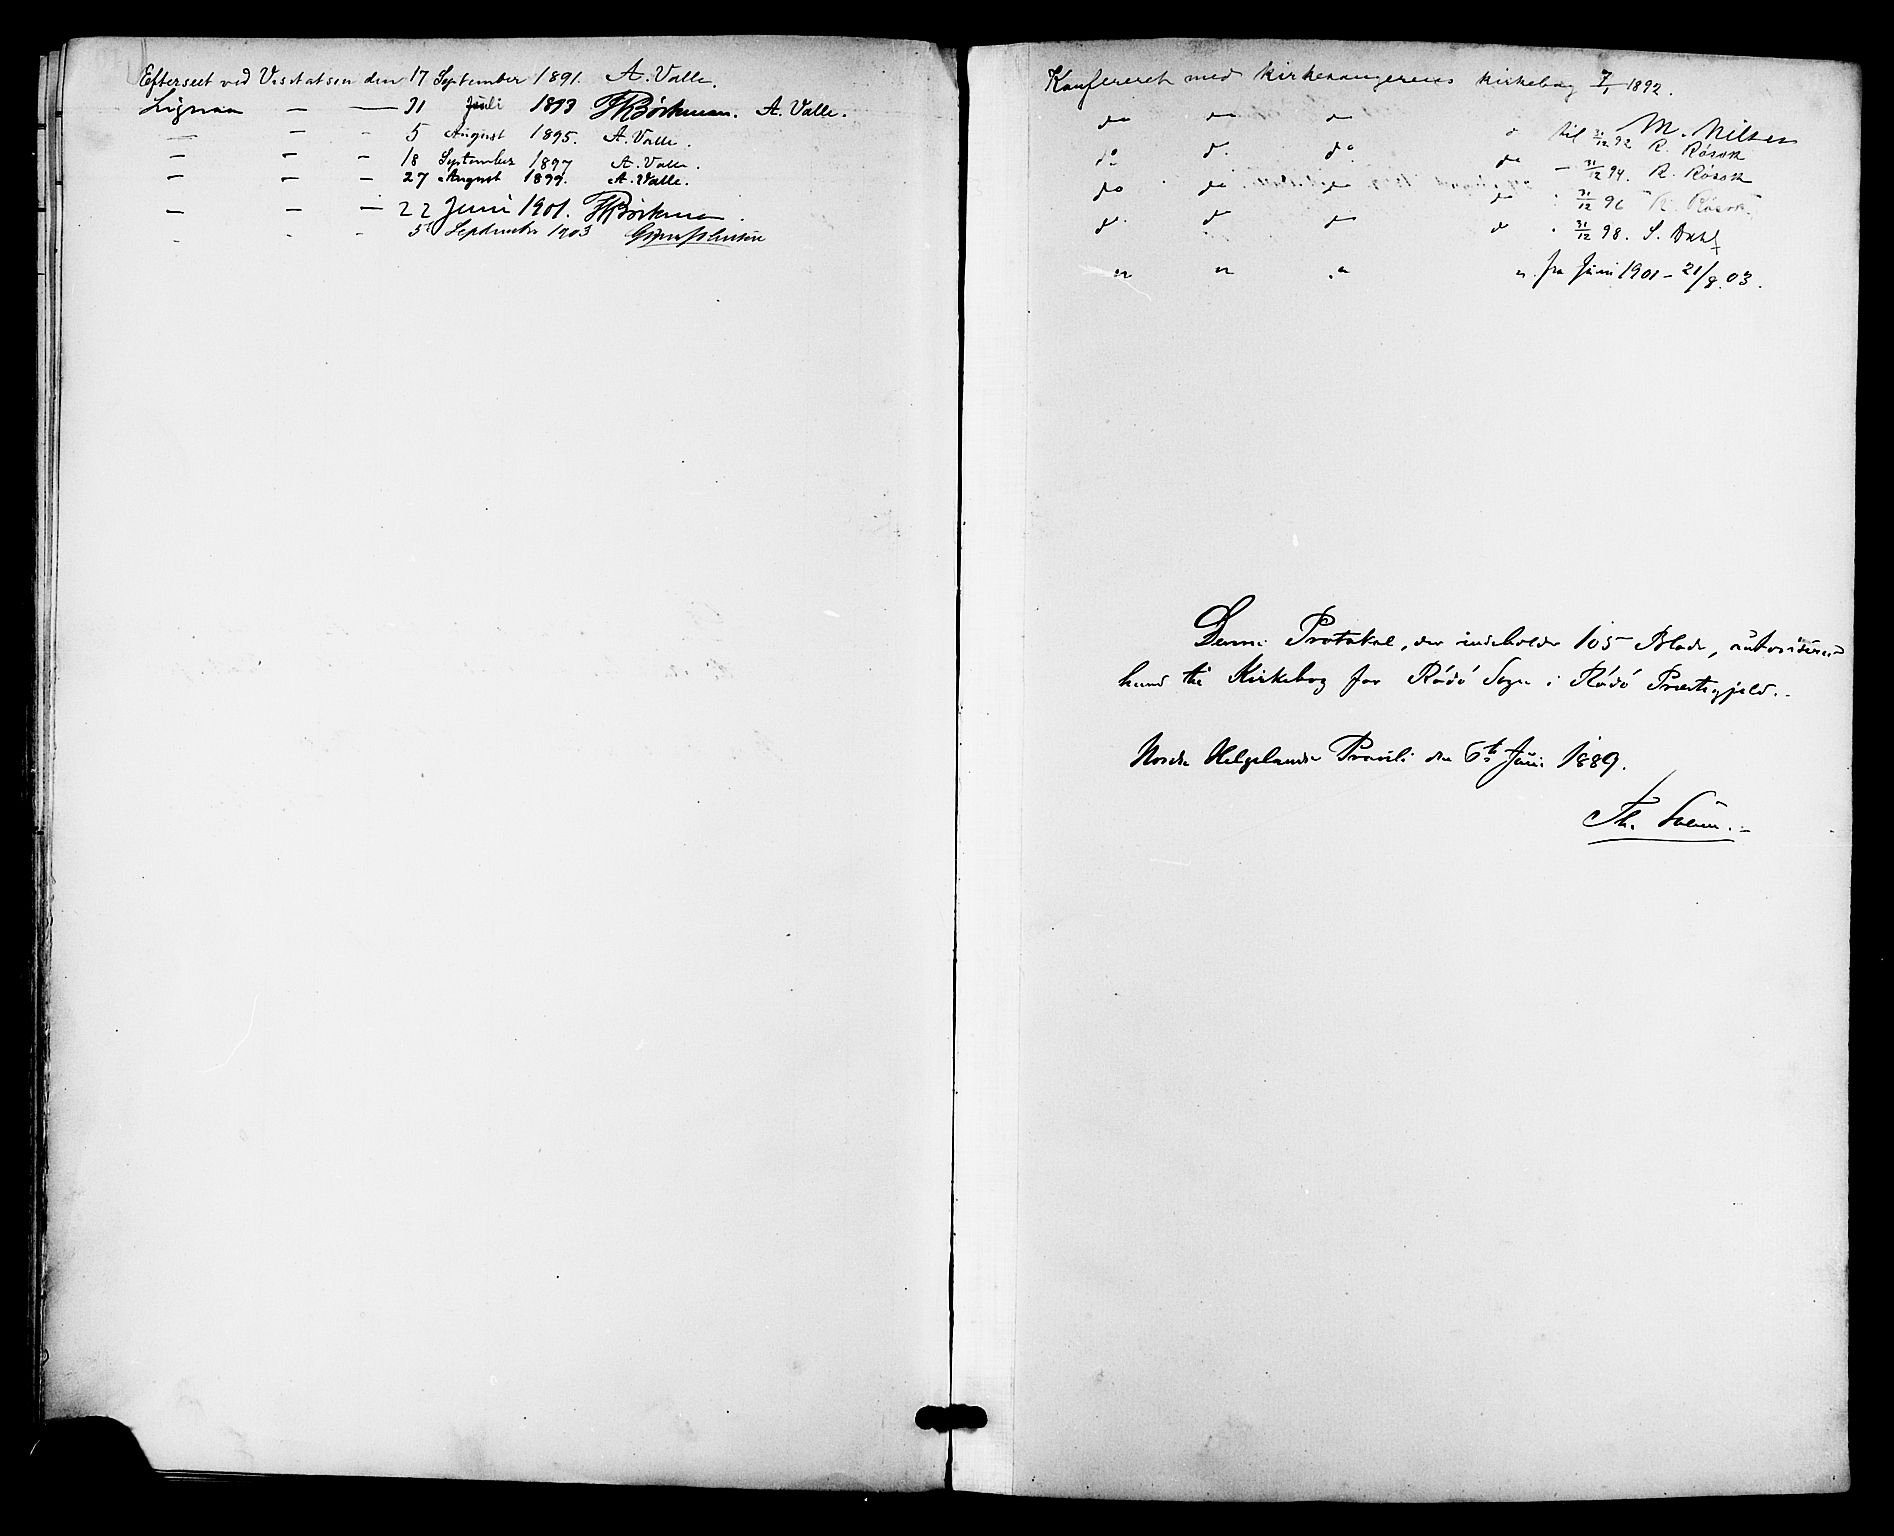 Efterseet ved Visitatsen den 17 September 1891. A. Valle.
Lignaa — — 31 Juli 1893 JRBörkman. A. Valle.
— — - 5 August 1895. A. Valle.
— — — 18 September 1897 A. Valle.
— — — 27 August 1899. A. Valle.
— — — 22 Juni 1901. JRBörkman.
- - - 5te September 1903
Konfereret med Kirkesangerens Kirkebog 7/1 1892.
do do do M. Nilsen
do do do do til 31/12 92 R. Røsok
do do do do — 31/12 94. R. Røsok
do do do do " 31/12 96 R. Røsok
do do do do " 31/12 98. S. Dahl
" " " " fra Juni 1901 - 21/8 03.
Denne Protokol, der indeholder 105 Blade, autoriseres
herved til Kirkebog for Rödö Sogn i Rödö Præstegjeld.
Nordre Helgelands Provsti den 6te Juni 1889.